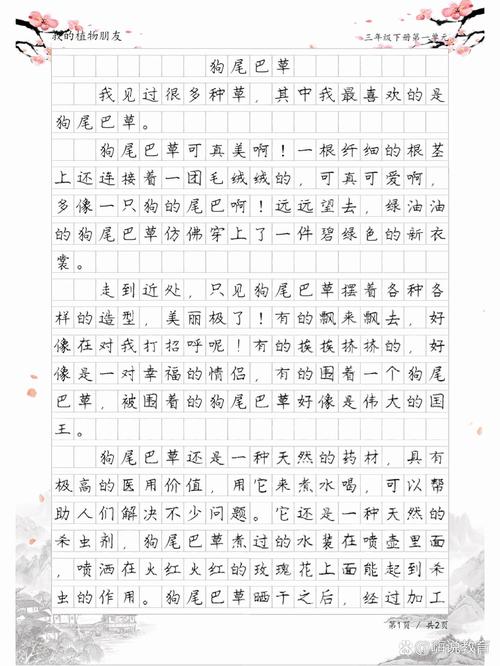 我的植物朋友
三年级下册第一单元
狗尾巴草
我见过很多种草，其中我最喜欢的是
狗尾巴草。
狗尾巴草可真美啊！一根纤细的根茎
上还连接着一团毛绒绒的，可真可爱啊，
多像一只狗的尾巴啊！远远望去，绿油油
的狗尾巴草仿佛穿上了一件碧绿色的新衣
裳。
走到近处，只见狗尾巴草摆着各种各
样的造型，美丽极了！有的飘来飘去，好
像在对我打招呼呢！有的挨挨挤挤的，好
像是一对幸福的情侣，有的围着一个狗尾
巴草，被围着的狗尾巴草好像是伟大的国
王。
狗尾巴草还是一种天然的药材，具有
极高的医用价值，用它来煮水喝，可以帮
助人们解决不少问题。它还是一种天然的
杀虫剂，狗尾巴草煮过的水装在喷壶里面
，喷洒在火红火红的玫瑰花上面能起到杀
虫的作用。狗尾巴草晒干之后，经过加工
第1页 / 共2页